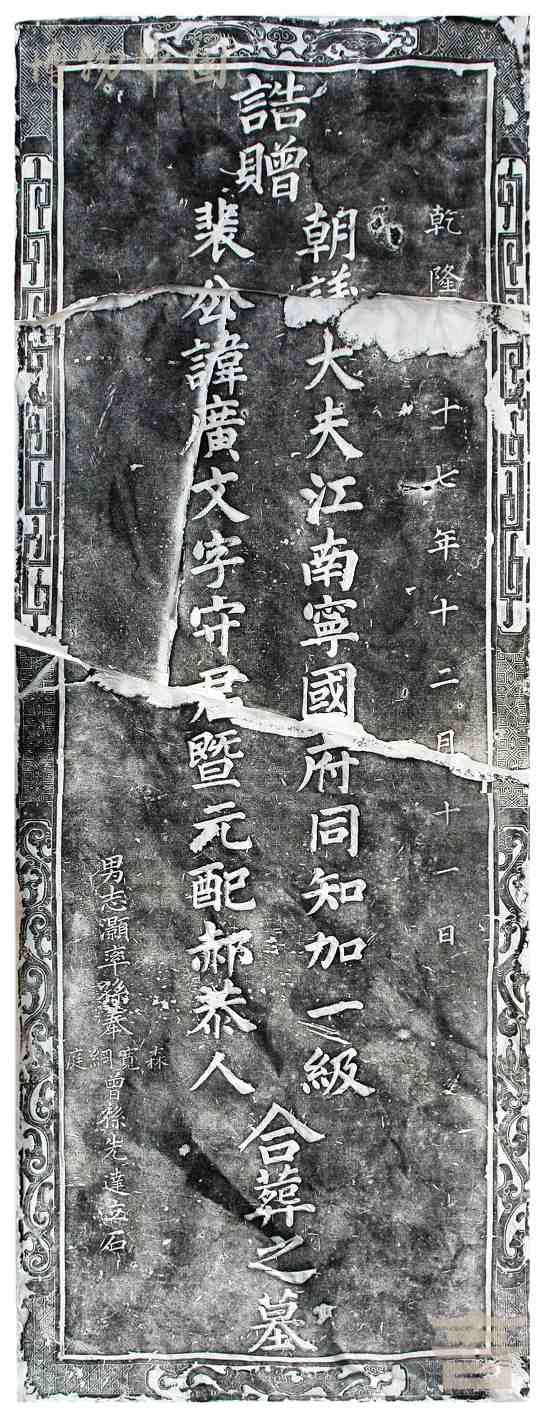 博物中国
乾隆十七年十二月十一日
誥贈
朝議大夫江南寧國府同知加一級
裴公諱廣文字守君暨元配郝恭人
合葬之墓
男志灝率孫
森寬綱庭
曾孫先達立石